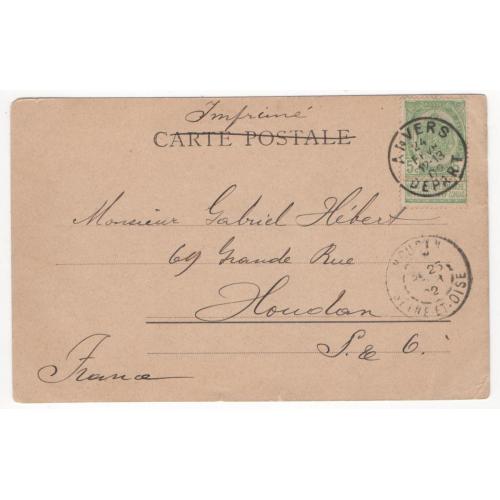 Imprimé
CARTE POSTALE
ANVERS
DEPART
Monsieur Gabriel Hébert
69 Grande Rue
Houdan
S. & O.
France
HOUDAN
25
02
SEINE-ET-OISE